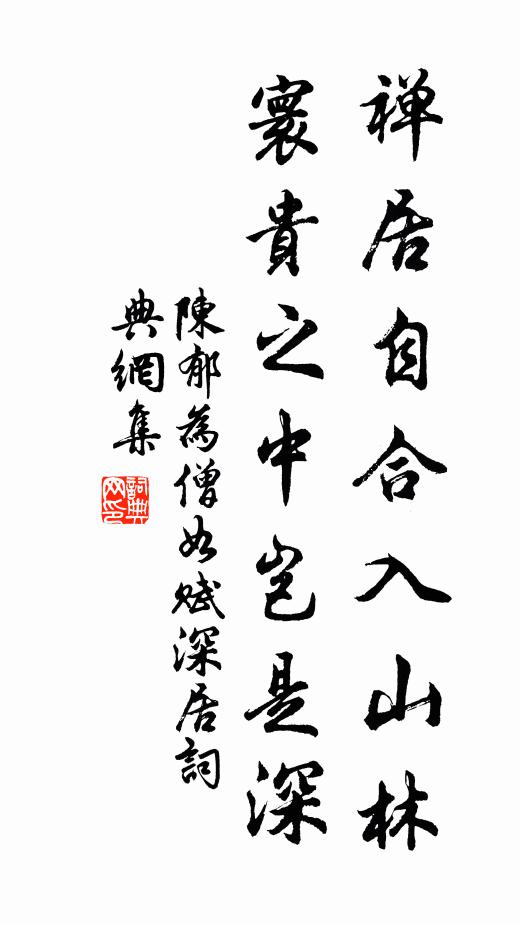 禅居自合入山林
寰貴之中岂是深
陳郁為僧如賦深居詞
典網集
詞典
网印